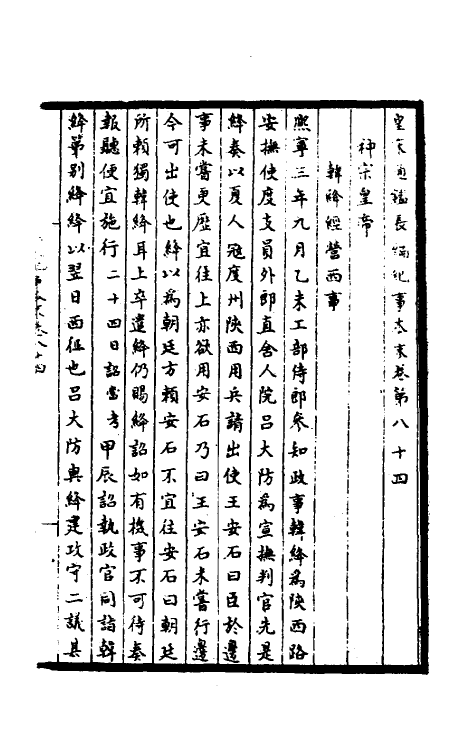 皇宋通鑑長編紀事本末卷第八十四
神宗皇帝
韓絳經營西事
熙寧三年九月乙未工部侍郎參知政事韓絳為陝西路
安撫使度支員外郎直舍人院呂大防為宣撫判官先是
絳奏以夏人寇慶州陝西用兵請出使王安石曰臣於邊
事未嘗更歷宜往上亦欲用安石乃曰王安石未嘗行邊
今可出使也絳以為朝廷方賴安石不宜往安石曰朝廷
所賴獨韓絳耳上卒遣絳仍賜絳詔如有機事不可待奏
報聽便宜施行二十四日詔當考甲辰詔執政官同詣韓
絳第別絳絳以翌日西征也呂大防與絳建攻守二議其